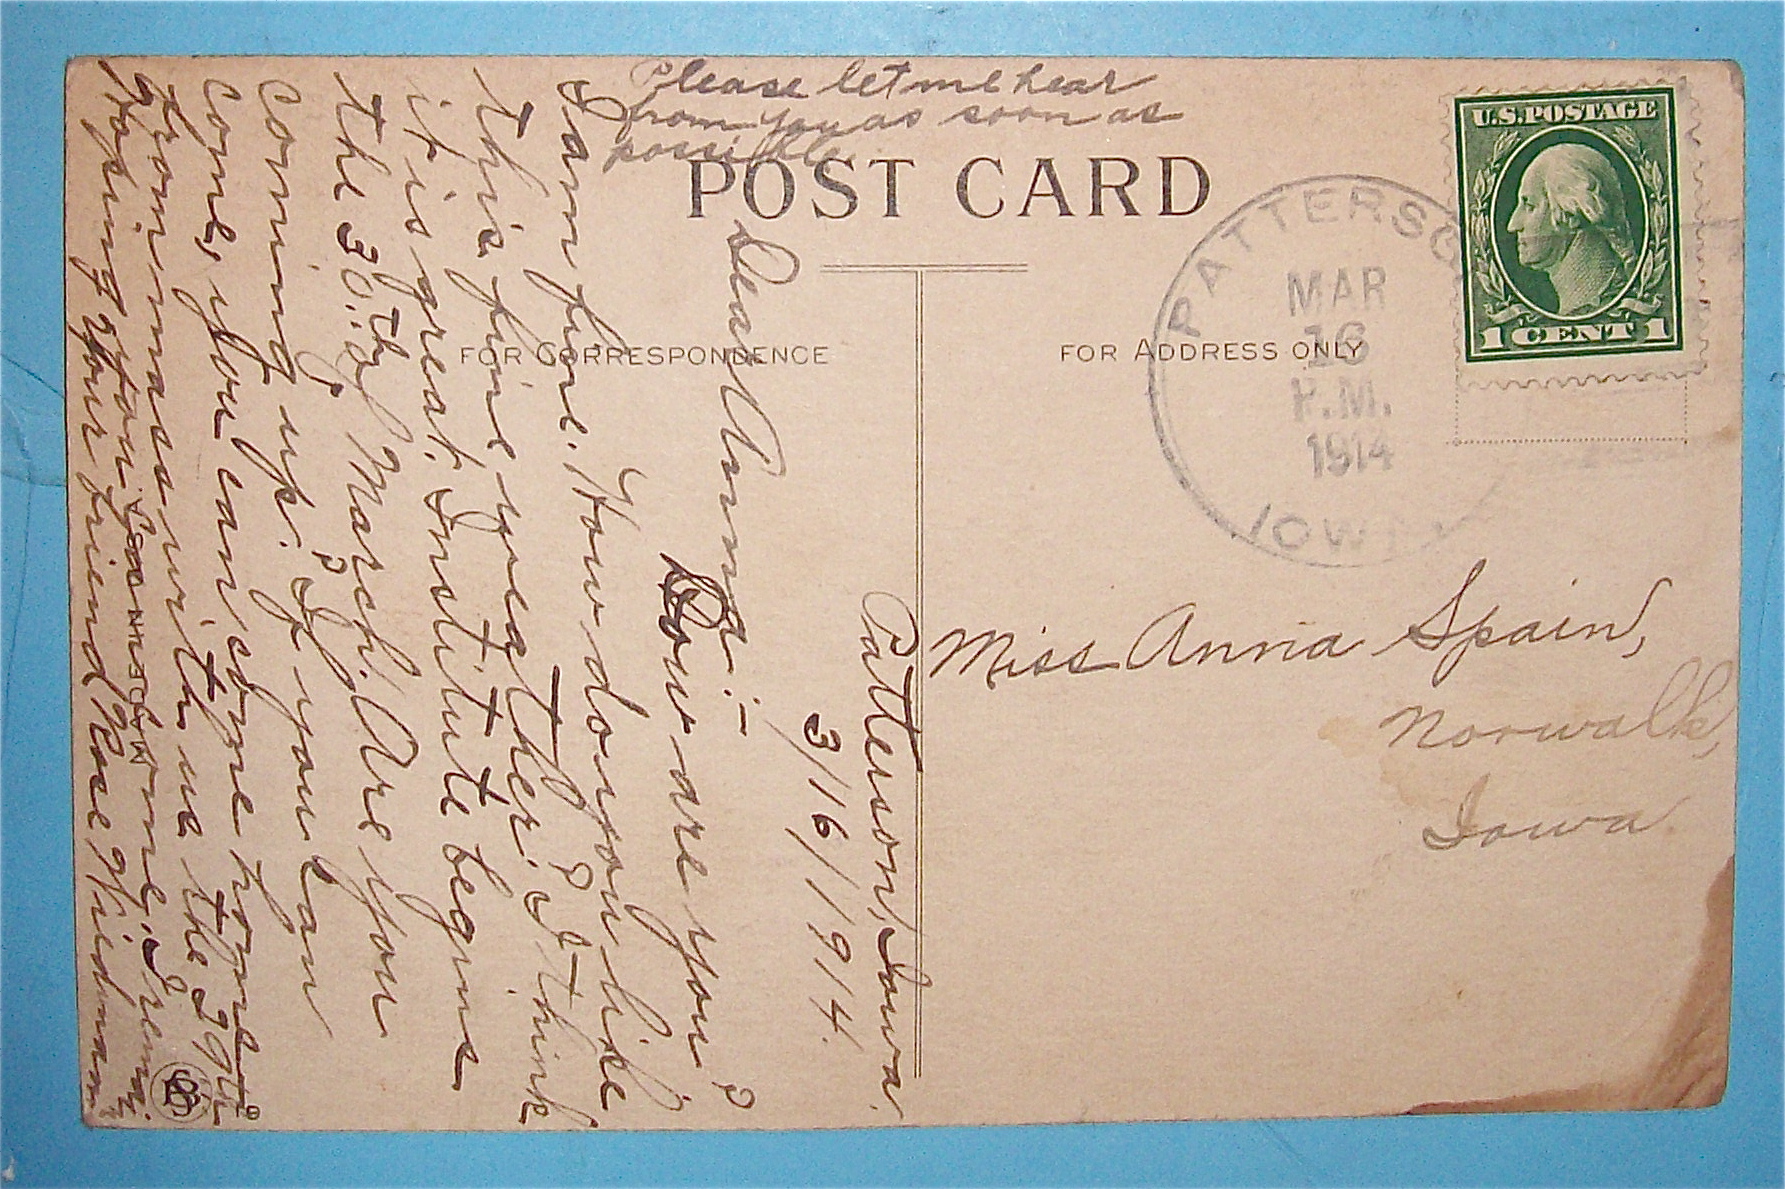 Please let me hear
from you as soon as
possible
POST CARD
FOR CORRESPONDENCE
FOR ADDRESS ONLY
U.S. POSTAGE
1 CENT 1
PATTERSO
MAR
16
P.M.
1914
IOWA
Miss Anna Spain,
Norwalk,
Iowa
Patterson, Iowa.
3/16/1914.
Dear Anna:-
How are you?
I am fine. How do you like
this fine weather? I think
it is great. Institute begins
the 30th of March. Are you
coming up? If you can
come, you can come home
from mass with us the 29th
Hoping you come. I rem.
Your friend Rose Weidmann
MADE IN